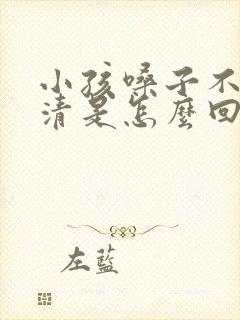 小孩嗓子不
清是怎麼回
左藍